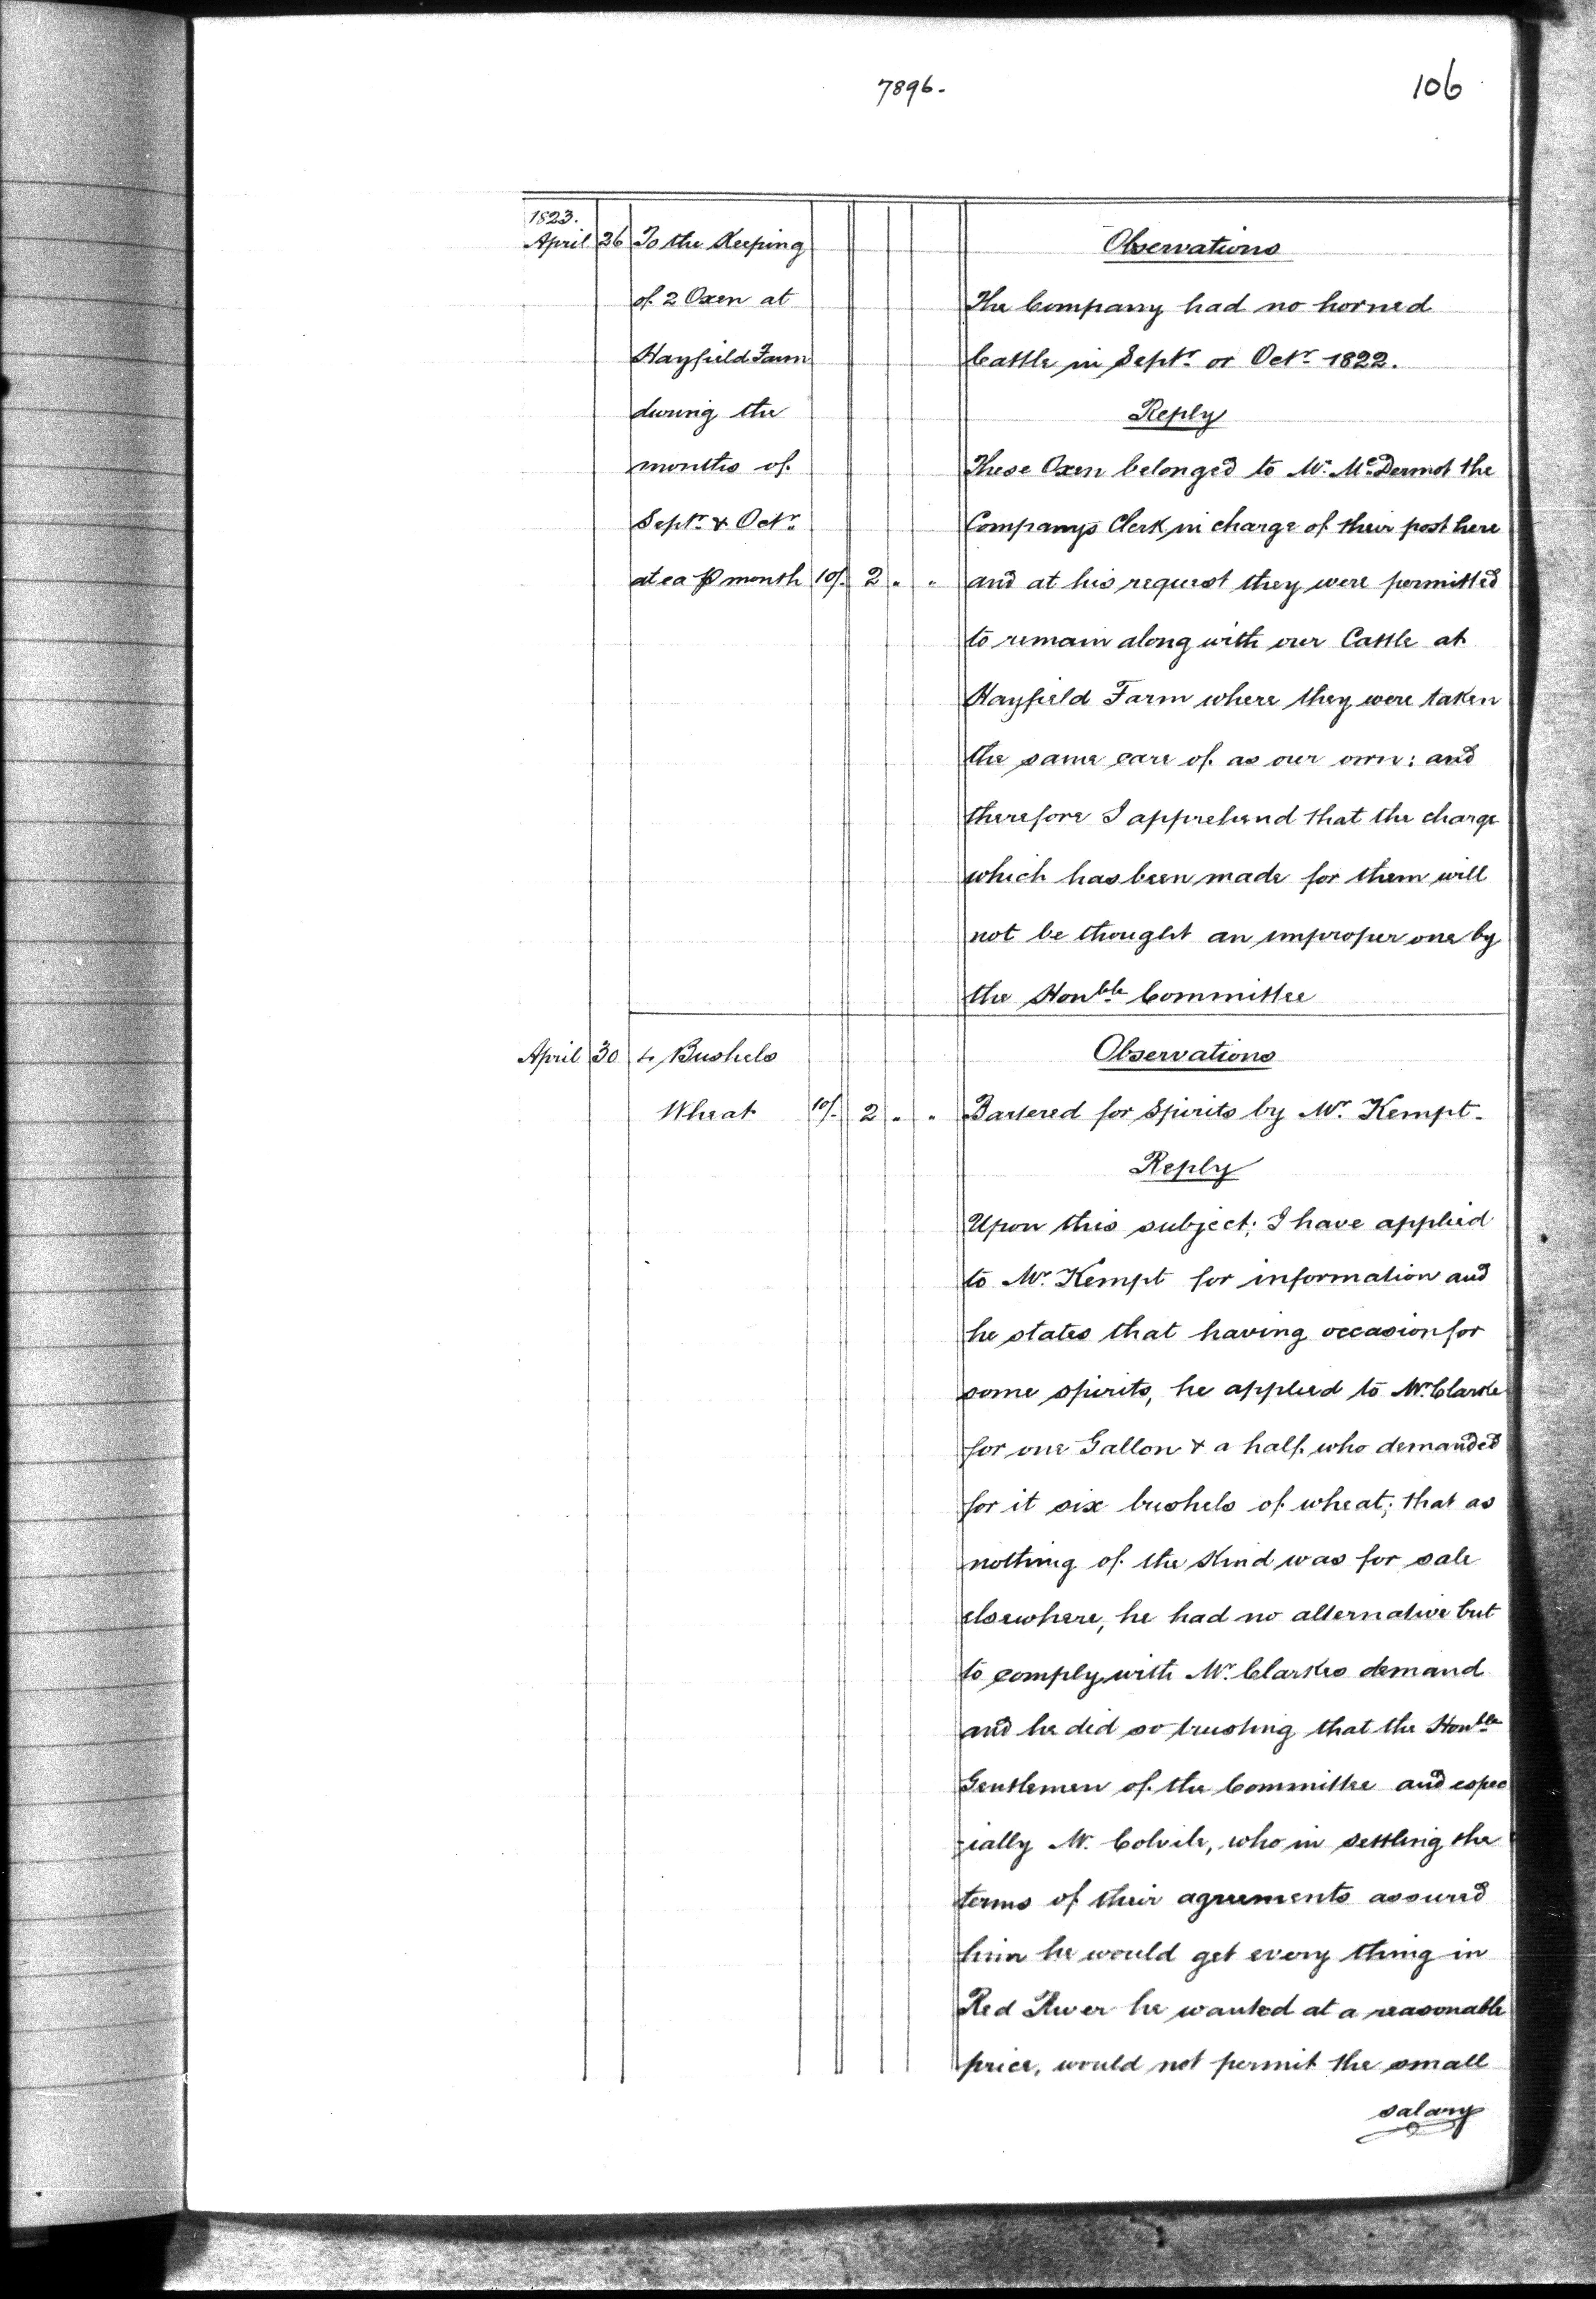 7896.
106
1823.
April 26 To the Keeping
of 2 Oxen at
Hayfield Farm
during the
months of
Septr. & Octr.
at ea ⅌ month 10/. 2 " "
Observations
The Company had no horned
Cattle in Septr. or Octr. 1822.
Reply
These Oxen belonged to Mr. McDermot the
Companys Clerk in charge of their post here
and at his request they were permitted
to remain along with our Cattle at
Hayfield Farm where they were taken
the same care of as our own: and
therefore I apprehend that the charge
which has been made for them will
not be thought an improper one by
the Honble. Committee
April 30 4 Bushels
Wheat 10/. 2 " "
Observations
Bartered for Spirits by Mr. Kempt.
Reply
Upon this subject; I have applied
to Mr. Kempt for information and
he states that having occasion for
some spirits, he applied to Mr. Clarke
for one Gallon & a half who demanded
for it six bushels of wheat; that as
nothing of the Kind was for sale
elsewhere, he had no alternative but
to comply with Mr. Clarkes demand
and he did so trusting that the Honble.
Gentlemen of the Committee and espec
=ially Mr. Colvile, who in settling the
terms of their agreements assured
him he would get every thing in
Red River he wanted at a reasonable
price, would not permit the small
salary